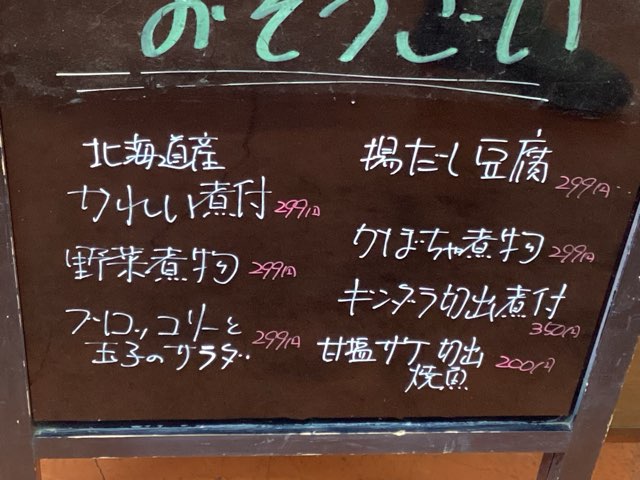 おそうざい
北海道産
かれい煮付 299円
野菜煮物 299円
ブロッコリーと
玉子のサラダ 299円
揚だし豆腐 299円
かぼちゃ煮物 299円
ギンダラ切出煮付
350円
甘塩サケ切出
焼魚 200円